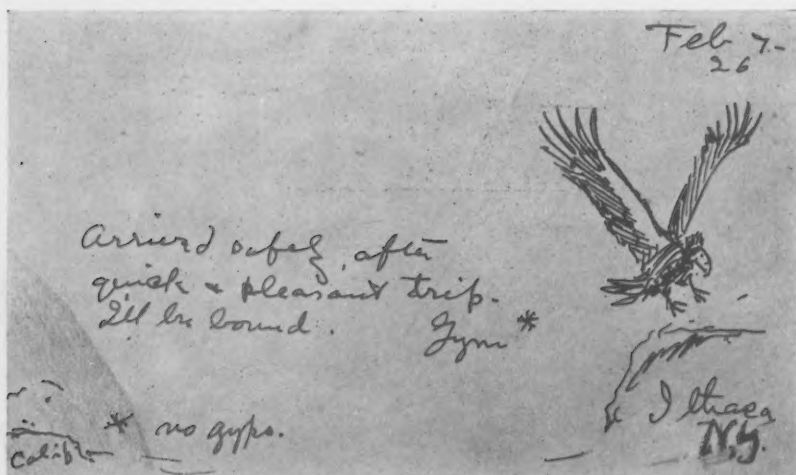 Feb 7-
26
Arrived safely, after
quick & pleasant trip.
I'll be bound. Gym *
* no gyps.
Calif
Ithaca
N.Y.